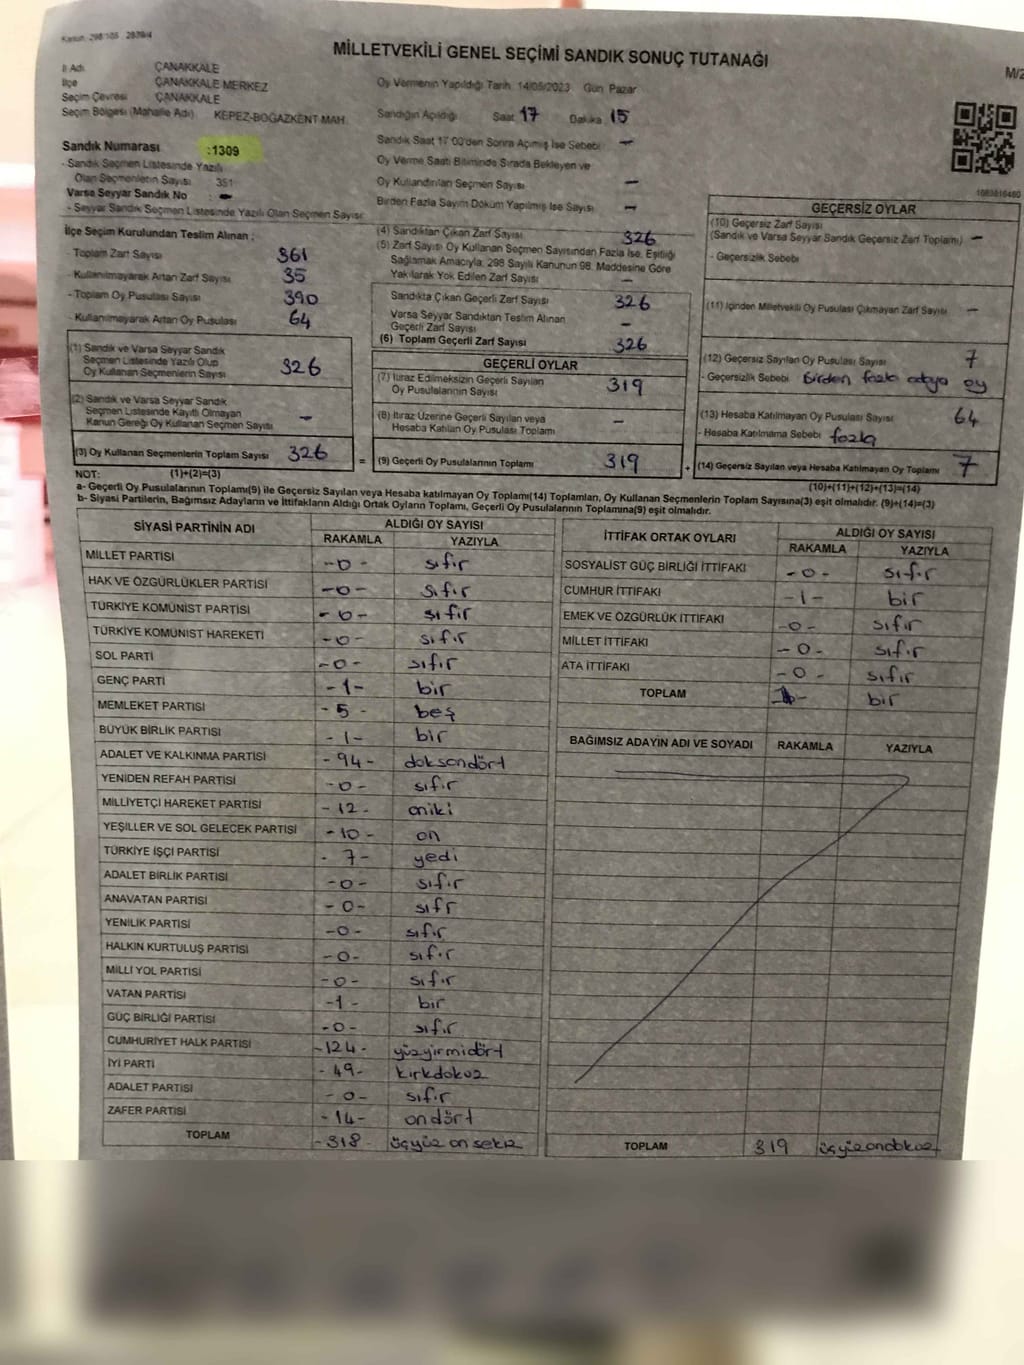 Kanun: 298/105 2839/4
MİLLETVEKİLİ GENEL SEÇİMİ SANDIK SONUÇ TUTANAĞI
M/2
İl Adı ÇANAKKALE
İlçe ÇANAKKALE MERKEZ
Seçim Çevresi ÇANAKKALE
Seçim Bölgesi (Mahalle Adı) KEPEZ-BOĞAZKENT MAH.
Sandık Numarası :1309
- Sandık Seçmen Listesinde Yazılı
Olan Seçmenlerin Sayısı 351
Varsa Seyyar Sandık No : -
- Seyyar Sandık Seçmen Listesinde Yazılı Olan Seçmen Sayısı
Oy Vermenin Yapıldığı Tarih: 14/05/2023 Gün Pazar
Sandığın Açıldığı Saat 17 Dakika 15
Sandık Saat 17 00'den Sonra Açılmış İse Sebebi -
Oy Verme Saati Bitiminde Sırada Bekleyen ve
Oy Kullandırılan Seçmen Sayısı -
Birden Fazla Sayım Döküm Yapılmış İse Sayısı -
İlçe Seçim Kurulundan Teslim Alınan :
- Toplam Zarf Sayısı 361
- Kullanılmayarak Artan Zarf Sayısı 35
- Toplam Oy Pusulası Sayısı 390
- Kullanılmayarak Artan Oy Pusulası 64
(1) Sandık ve Varsa Seyyar Sandık
Seçmen Listesinde Yazılı Olup
Oy Kullanan Seçmenlerin Sayısı 326
(2) Sandık ve Varsa Seyyar Sandık
Seçmen Listesinde Kayıtlı Olmayan
Kanun Gereği Oy Kullanan Seçmen Sayısı -
(3) Oy Kullanan Seçmenlerin Toplam Sayısı 326
(1)+(2)=(3)
(4) Sandıktan Çıkan Zarf Sayısı 326
(5) Zarf Sayısı Oy Kullanan Seçmen Sayısından Fazla İse, Eşitliği
Sağlamak Amacıyla, 298 Sayılı Kanunun 98. Maddesine Göre
Yakılarak Yok Edilen Zarf Sayısı -
Sandıkta Çıkan Geçerli Zarf Sayısı 326
Varsa Seyyar Sandıktan Teslim Alınan
Geçerli Zarf Sayısı -
(6) Toplam Geçerli Zarf Sayısı 326
GEÇERLİ OYLAR
(7) İtiraz Edilmeksizin Geçerli Sayılan
Oy Pusulalarının Sayısı 319
(8) İtiraz Üzerine Geçerli Sayılan veya
Hesaba Katılan Oy Pusulası Toplamı -
= (9) Geçerli Oy Pusulalarının Toplamı 319
GEÇERSİZ OYLAR
(10) Geçersiz Zarf Sayısı
(Sandık ve Varsa Seyyar Sandık Geçersiz Zarf Toplamı) -
- Geçersizlik Sebebi
(11) İçinden Milletvekili Oy Pusulası Çıkmayan Zarf Sayısı -
(12) Geçersiz Sayılan Oy Pusulası Sayısı 7
- Geçersizlik Sebebi Birden fazla oy
(13) Hesaba Katılmayan Oy Pusulası Sayısı 64
- Hesaba Katılmama Sebebi fazla
+ (14) Geçersiz Sayılan veya Hesaba Katılmayan Oy Toplamı 7
(10)+(11)+(12)+(13)=(14)
NOT:
a- Geçerli Oy Pusulalarının Toplamı(9) ile Geçersiz Sayılan veya Hesaba katılmayan Oy Toplamı(14) Toplamları, Oy Kullanan Seçmenlerin Toplam Sayısına(3) eşit olmalıdır. (9)+(14)=(3)
b- Siyasi Partilerin, Bağımsız Adayların ve İttifakların Aldığı Ortak Oyların Toplamı, Geçerli Oy Pusulalarının Toplamına(9) eşit olmalıdır.
SİYASİ PARTİNİN ADI ALDIĞI OY SAYISI
RAKAMLA YAZIYLA
MİLLET PARTİSİ -0- sıfır
HAK VE ÖZGÜRLÜKLER PARTİSİ -0- sıfır
TÜRKİYE KOMÜNİST PARTİSİ -0- sıfır
TÜRKİYE KOMÜNİST HAREKETİ -0- sıfır
SOL PARTİ -0- sıfır
GENÇ PARTİ -1- bir
MEMLEKET PARTİSİ -5- beş
BÜYÜK BİRLİK PARTİSİ -1- bir
ADALET VE KALKINMA PARTİSİ -94- doksandört
YENİDEN REFAH PARTİSİ -0- sıfır
MİLLİYETÇİ HAREKET PARTİSİ -12- oniki
YEŞİLLER VE SOL GELECEK PARTİSİ -10- on
TÜRKİYE İŞÇİ PARTİSİ -7- yedi
ADALET BİRLİK PARTİSİ -0- sıfır
ANAVATAN PARTİSİ -0- sıfr
YENİLİK PARTİSİ -0- sıfır
HALKIN KURTULUŞ PARTİSİ -0- sıfır
MİLLİ YOL PARTİSİ -0- sıfır
VATAN PARTİSİ -1- bir
GÜÇ BİRLİĞİ PARTİSİ -0- sıfır
CUMHURİYET HALK PARTİSİ -124- yüzyirmidört
İYİ PARTİ -49- kırkdokuz
ADALET PARTİSİ -0- sıfır
ZAFER PARTİSİ -14- ondört
TOPLAM -318- üçyüz on sekiz
İTTİFAK ORTAK OYLARI ALDIĞI OY SAYISI
RAKAMLA YAZIYLA
SOSYALİST GÜÇ BİRLİĞİ İTTİFAKI -0- sıfır
CUMHUR İTTİFAKI -1- bir
EMEK VE ÖZGÜRLÜK İTTİFAKI -0- sıfır
MİLLET İTTİFAKI -0- sıfır
ATA İTTİFAKI -0- sıfır
TOPLAM -1- bir
BAĞIMSIZ ADAYIN ADI VE SOYADI RAKAMLA YAZIYLA
TOPLAM 319 üçyüzondokuz